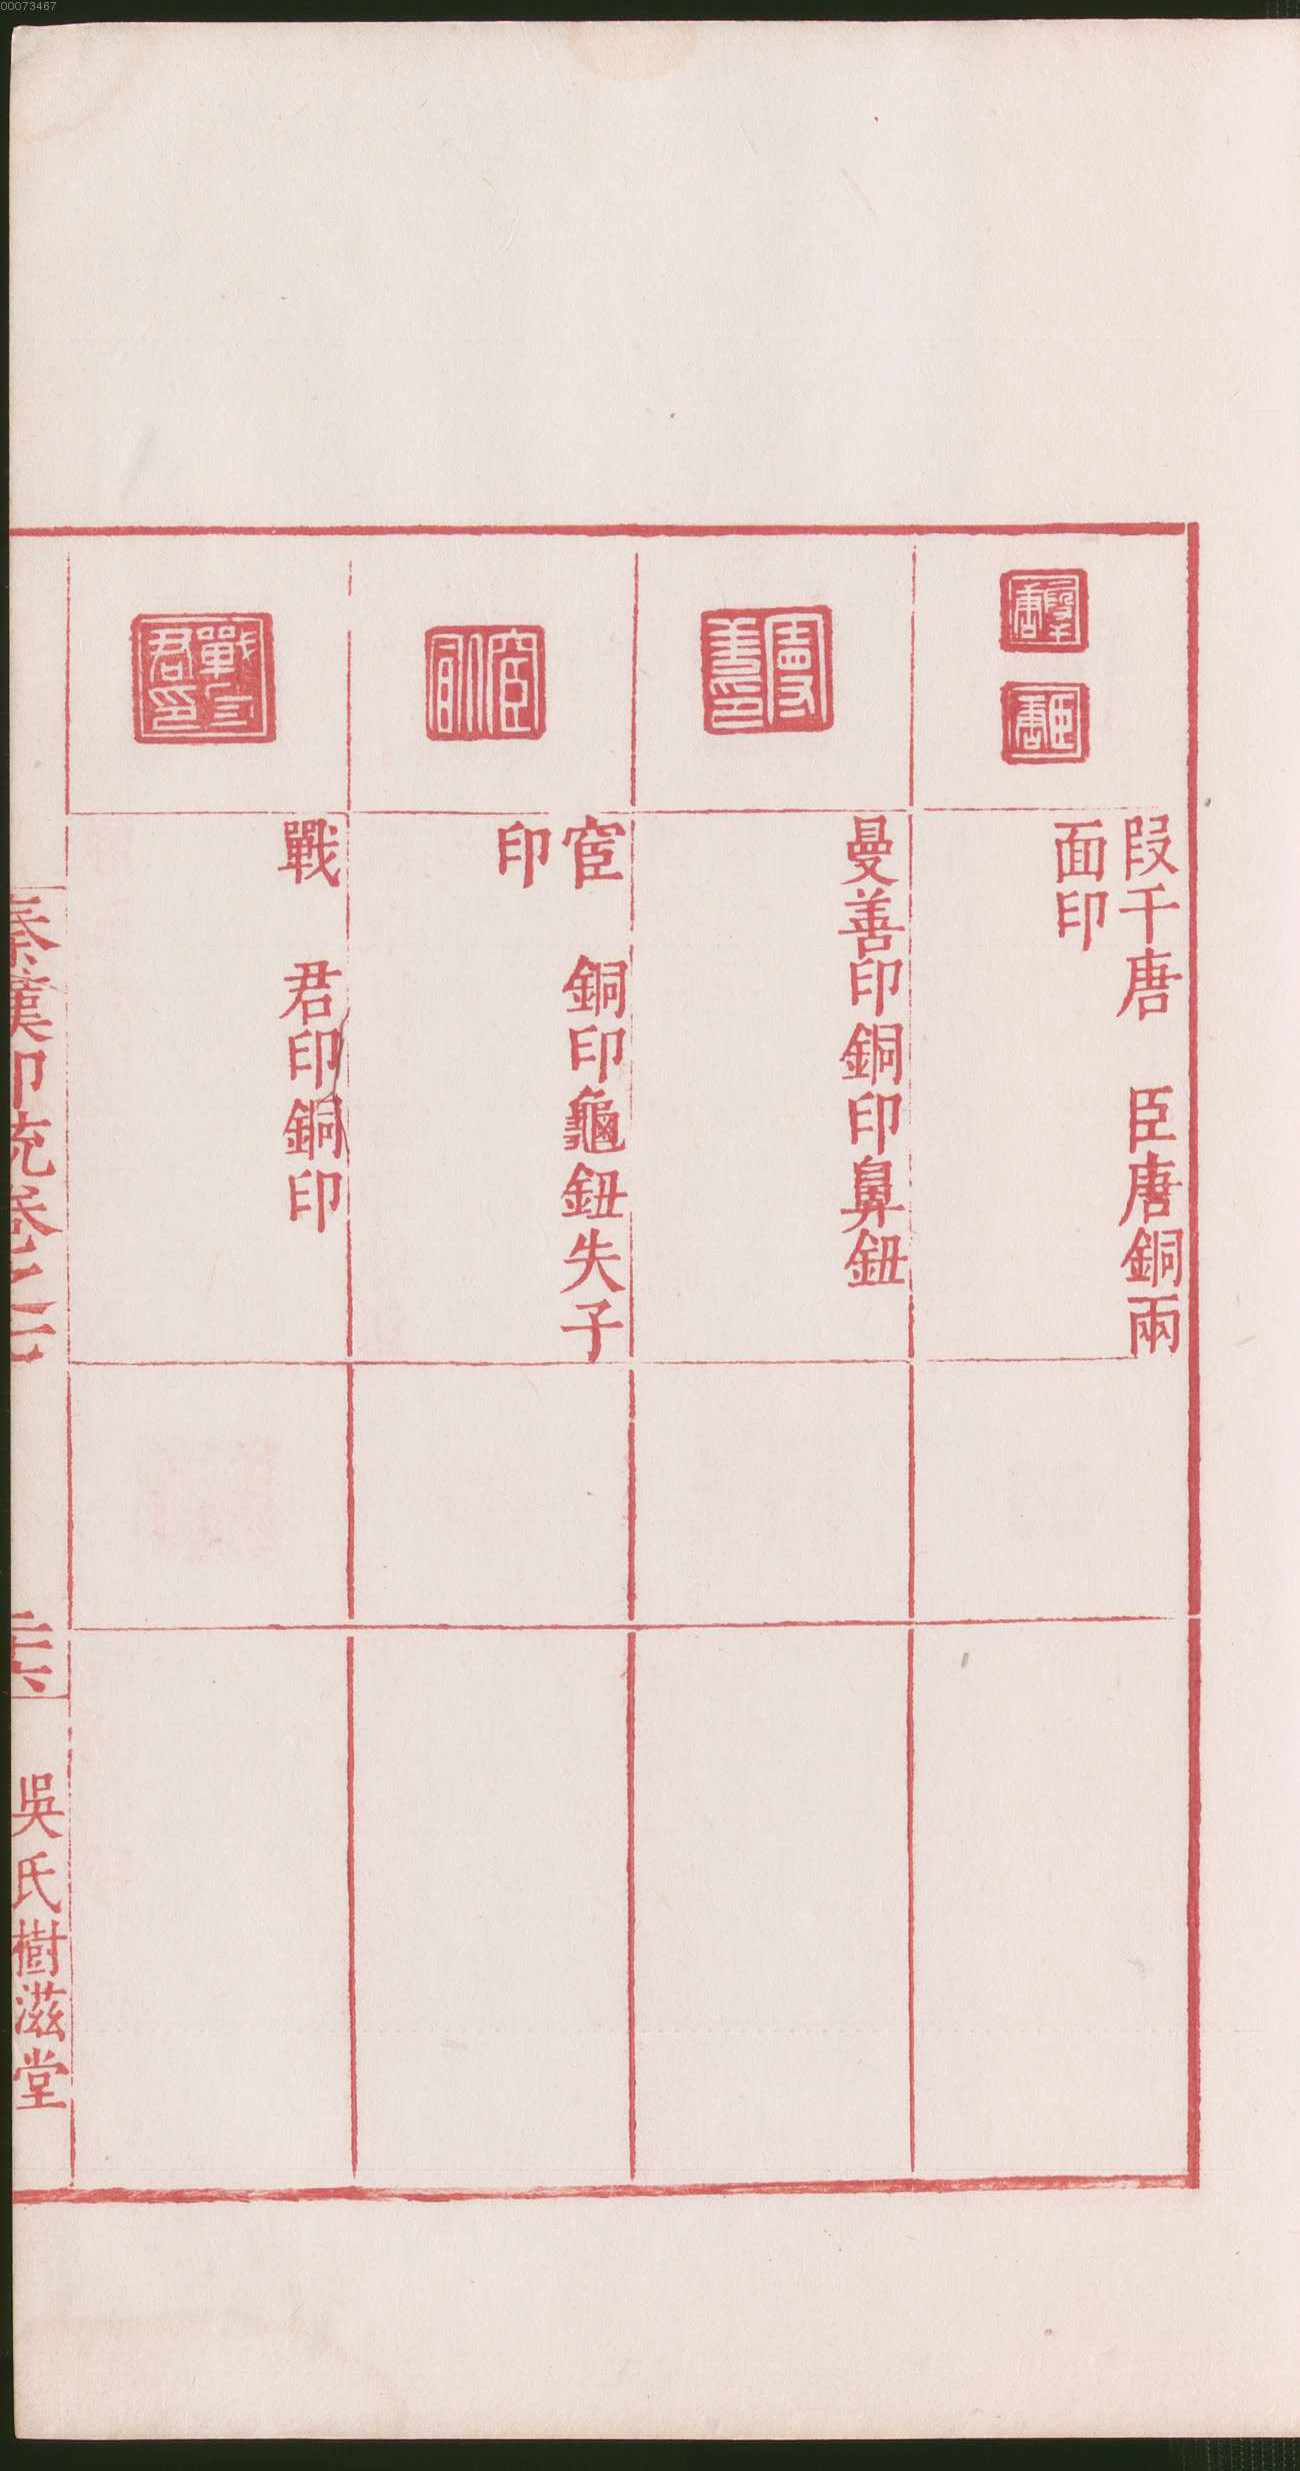 00073467
段干唐　臣唐銅兩
面印
曼善印銅印鼻鈕
宦　銅印龜鈕失子
印
戰　君印銅印
秦漢印統卷之
吳氏樹滋堂